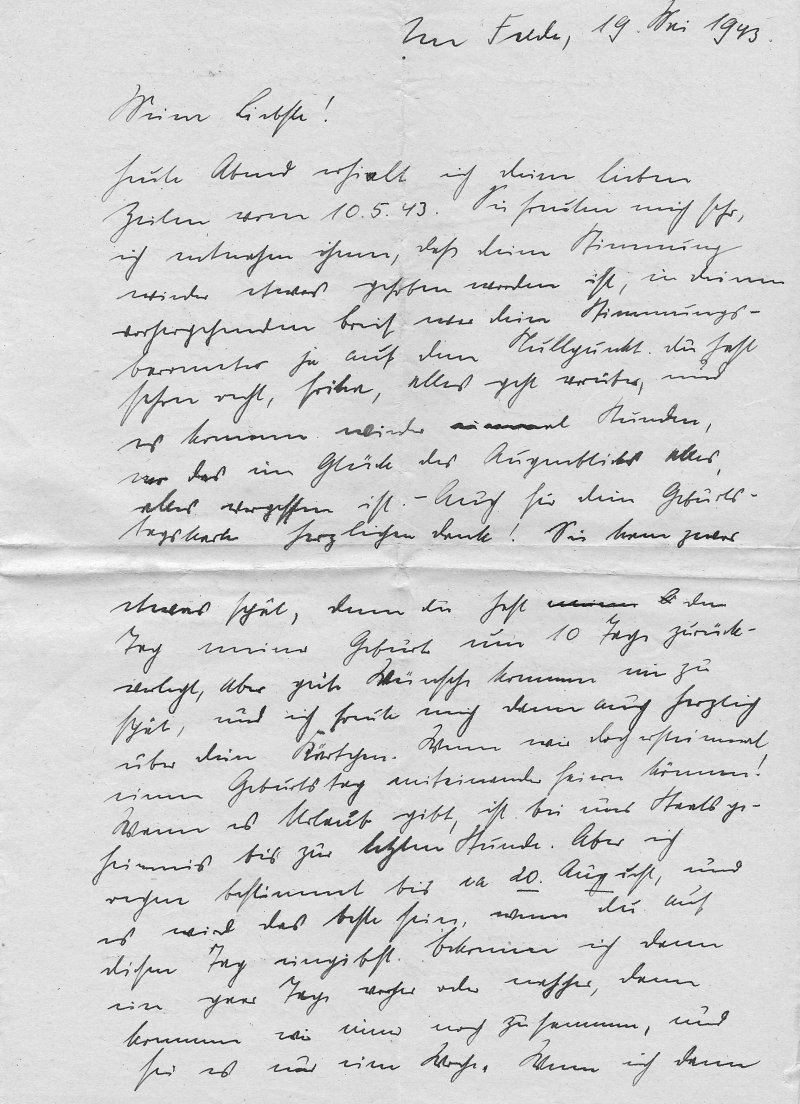 Im Felde, 19. Mai 1943.
Meine Liebste!
Heute Abend erhielt ich deine lieben
Zeilen vom 10.5.43. Sie freuten mich sehr,
ich entnahm ihnen, daß deine Stimmung
wieder etwas gehoben worden ist, in deinem
vorhergehenden Brief war dein Stimmungs-
barometer ja auf dem Nullpunkt. Du hast
schon recht, alles geht vorüber, und
es kommen wieder einmal Stunden,
wo das im Glück des Augenblicks alles,
alles vergessen ist. – Auch für deine Geburts-
tagskarte herzlichen Dank! Sie kam zwar
etwas spät, denn du hast meinen den
Tag meiner Geburt um 10 Tage zurück-
verlegt, aber gute Wünsche kommen nie zu
spät, und ich freute mich dann auch herzlich
über dein Kärtchen. Wenn wir doch erst einmal
einen Geburtstag miteinander feiern können!
Wann es Urlaub gibt, ist bei uns Staatsge-
heimnis bis zur letzten Stunde. Aber ich
rechne bestimmt bis ca 20. August, und
es wird das beste sein, wenn du auf
diesen Tag eingibst. Bekomme ich dann
ein paar Tage vorher oder nachher, dann
kommen wir immer noch zusammen, und
sei es nur eine Woche. Wenn ich dann